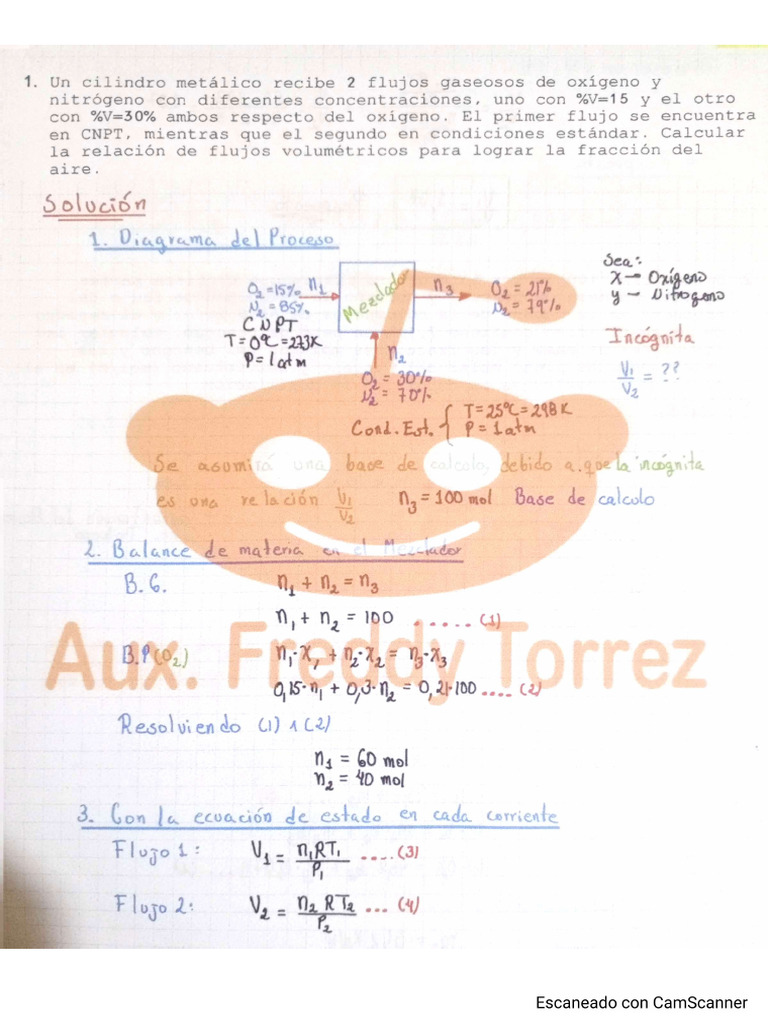 1. Un cilindro metálico recibe 2 flujos gaseosos de oxígeno y
nitrógeno con diferentes concentraciones, uno con %V=15 y el otro
con %V=30% ambos respecto del oxígeno. El primer flujo se encuentra
en CNPT, mientras que el segundo en condiciones estándar. Calcular
la relación de flujos volumétricos para lograr la fracción del
aire.
Solución
1. Diagrama del Proceso
O₂ = 15% n₁
N₂ = 85%
CNPT
T = 0°C = 273K
P = 1 atm
Mezclador
n₃ O₂ = 21%
N₂ = 79%
Sea:
X → Oxígeno
y → Nitrogeno
Incógnita
V₁/V₂ = ??
n₂
O₂ = 30%
N₂ = 70%
Cond. Est. { T = 25°C = 298K
P = 1 atm
Se asumirá una base de calculo, debido a que la incógnita
es una relación V₁/V₂ n₃ = 100 mol Base de calculo
2. Balance de materia en el Mezclador
B.G. n₁ + n₂ = n₃
n₁ + n₂ = 100 ..... (1)
B.P (O₂) n₁·x₁ + n₂·x₂ = n₃·x₃
0,15·n₁ + 0,3·n₂ = 0,21·100 .... (2)
Aux. Freddy Torrez
Resolviendo (1) ∧ (2)
n₁ = 60 mol
n₂ = 40 mol
3. Con la ecuación de estado en cada corriente
Flujo 1: V₁ = n₁RT₁/P₁ .... (3)
Flujo 2: V₂ = n₂RT₂/P₂ ... (4)
Escaneado con CamScanner